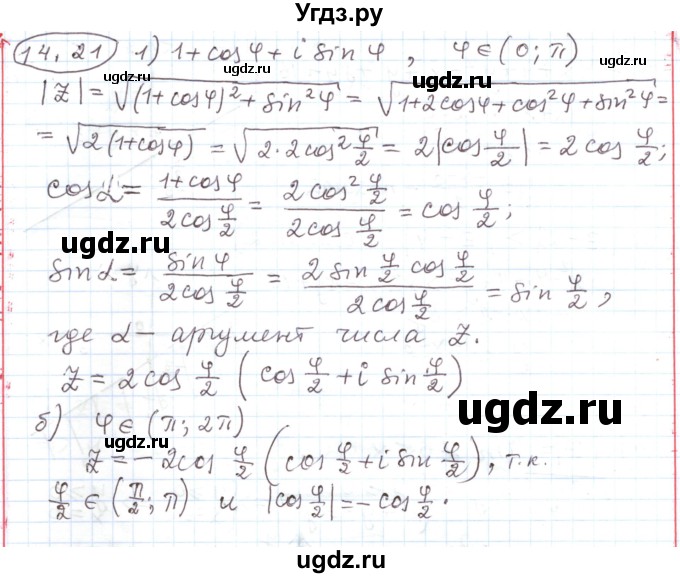 Угдз.ру
14.21 1) 1+cosφ+i sinφ, φ∈(0;π)
gdz.ru
gdz.ru
|Z|=√((1+cosφ)²+sin²φ)=√(1+2cosφ+cos²φ+sin²φ)=
=√(2(1+cosφ))=√(2·2cos²φ/2)=2|cosφ/2|=2cosφ/2;
gdz.ru
cosα=(1+cosφ)/(2cosφ/2)=(2cos²φ/2)/(2cosφ/2)=cosφ/2;
ugdz.ru
sinα=sinφ/(2cosφ/2)=(2sinφ/2 cosφ/2)/(2cosφ/2)=sinφ/2,
ugdz.ru
где α–аргумент числа Z.
Z=2cosφ/2(cosφ/2+i sinφ/2)
ugdz.ru
б) φ∈(π;2π)
gdz.ru
Z=-2cosφ/2(cosφ/2+i sinφ/2), т.к.
φ/2∈(π/2;π) и |cosφ/2|=-cosφ/2.
ugdz.ru
ugdz.ru
ugdz.ru